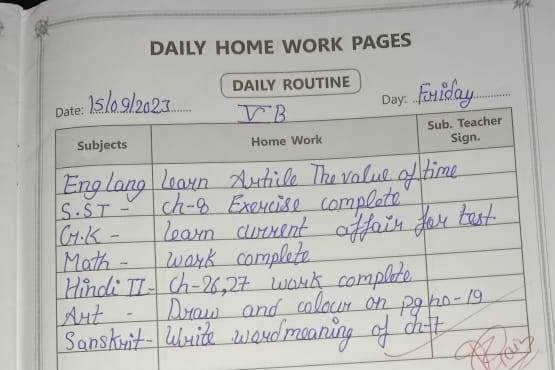 DAILY HOME WORK PAGES
DAILY ROUTINE
Date: 15/09/2023 V B Day: Friday
Subjects Home Work Sub. Teacher Sign.
Eng lang learn Article The value of time
S.ST - ch-8 Exercise complete
G.K - learn current affair for test
Math - work complete
Hindi II - Ch-26,27 work complete
Art - Draw and colour on pg no-19
Sanskrit - Write word meaning of ch-7